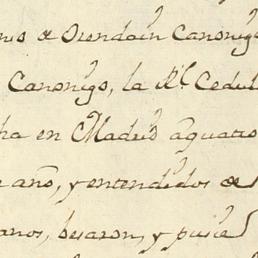 de Orendain Canonigo
Canonigo, la Rl. Cedul
ha en Madrid a quatro
año, y entendidos de
anos, besaron, y pusie